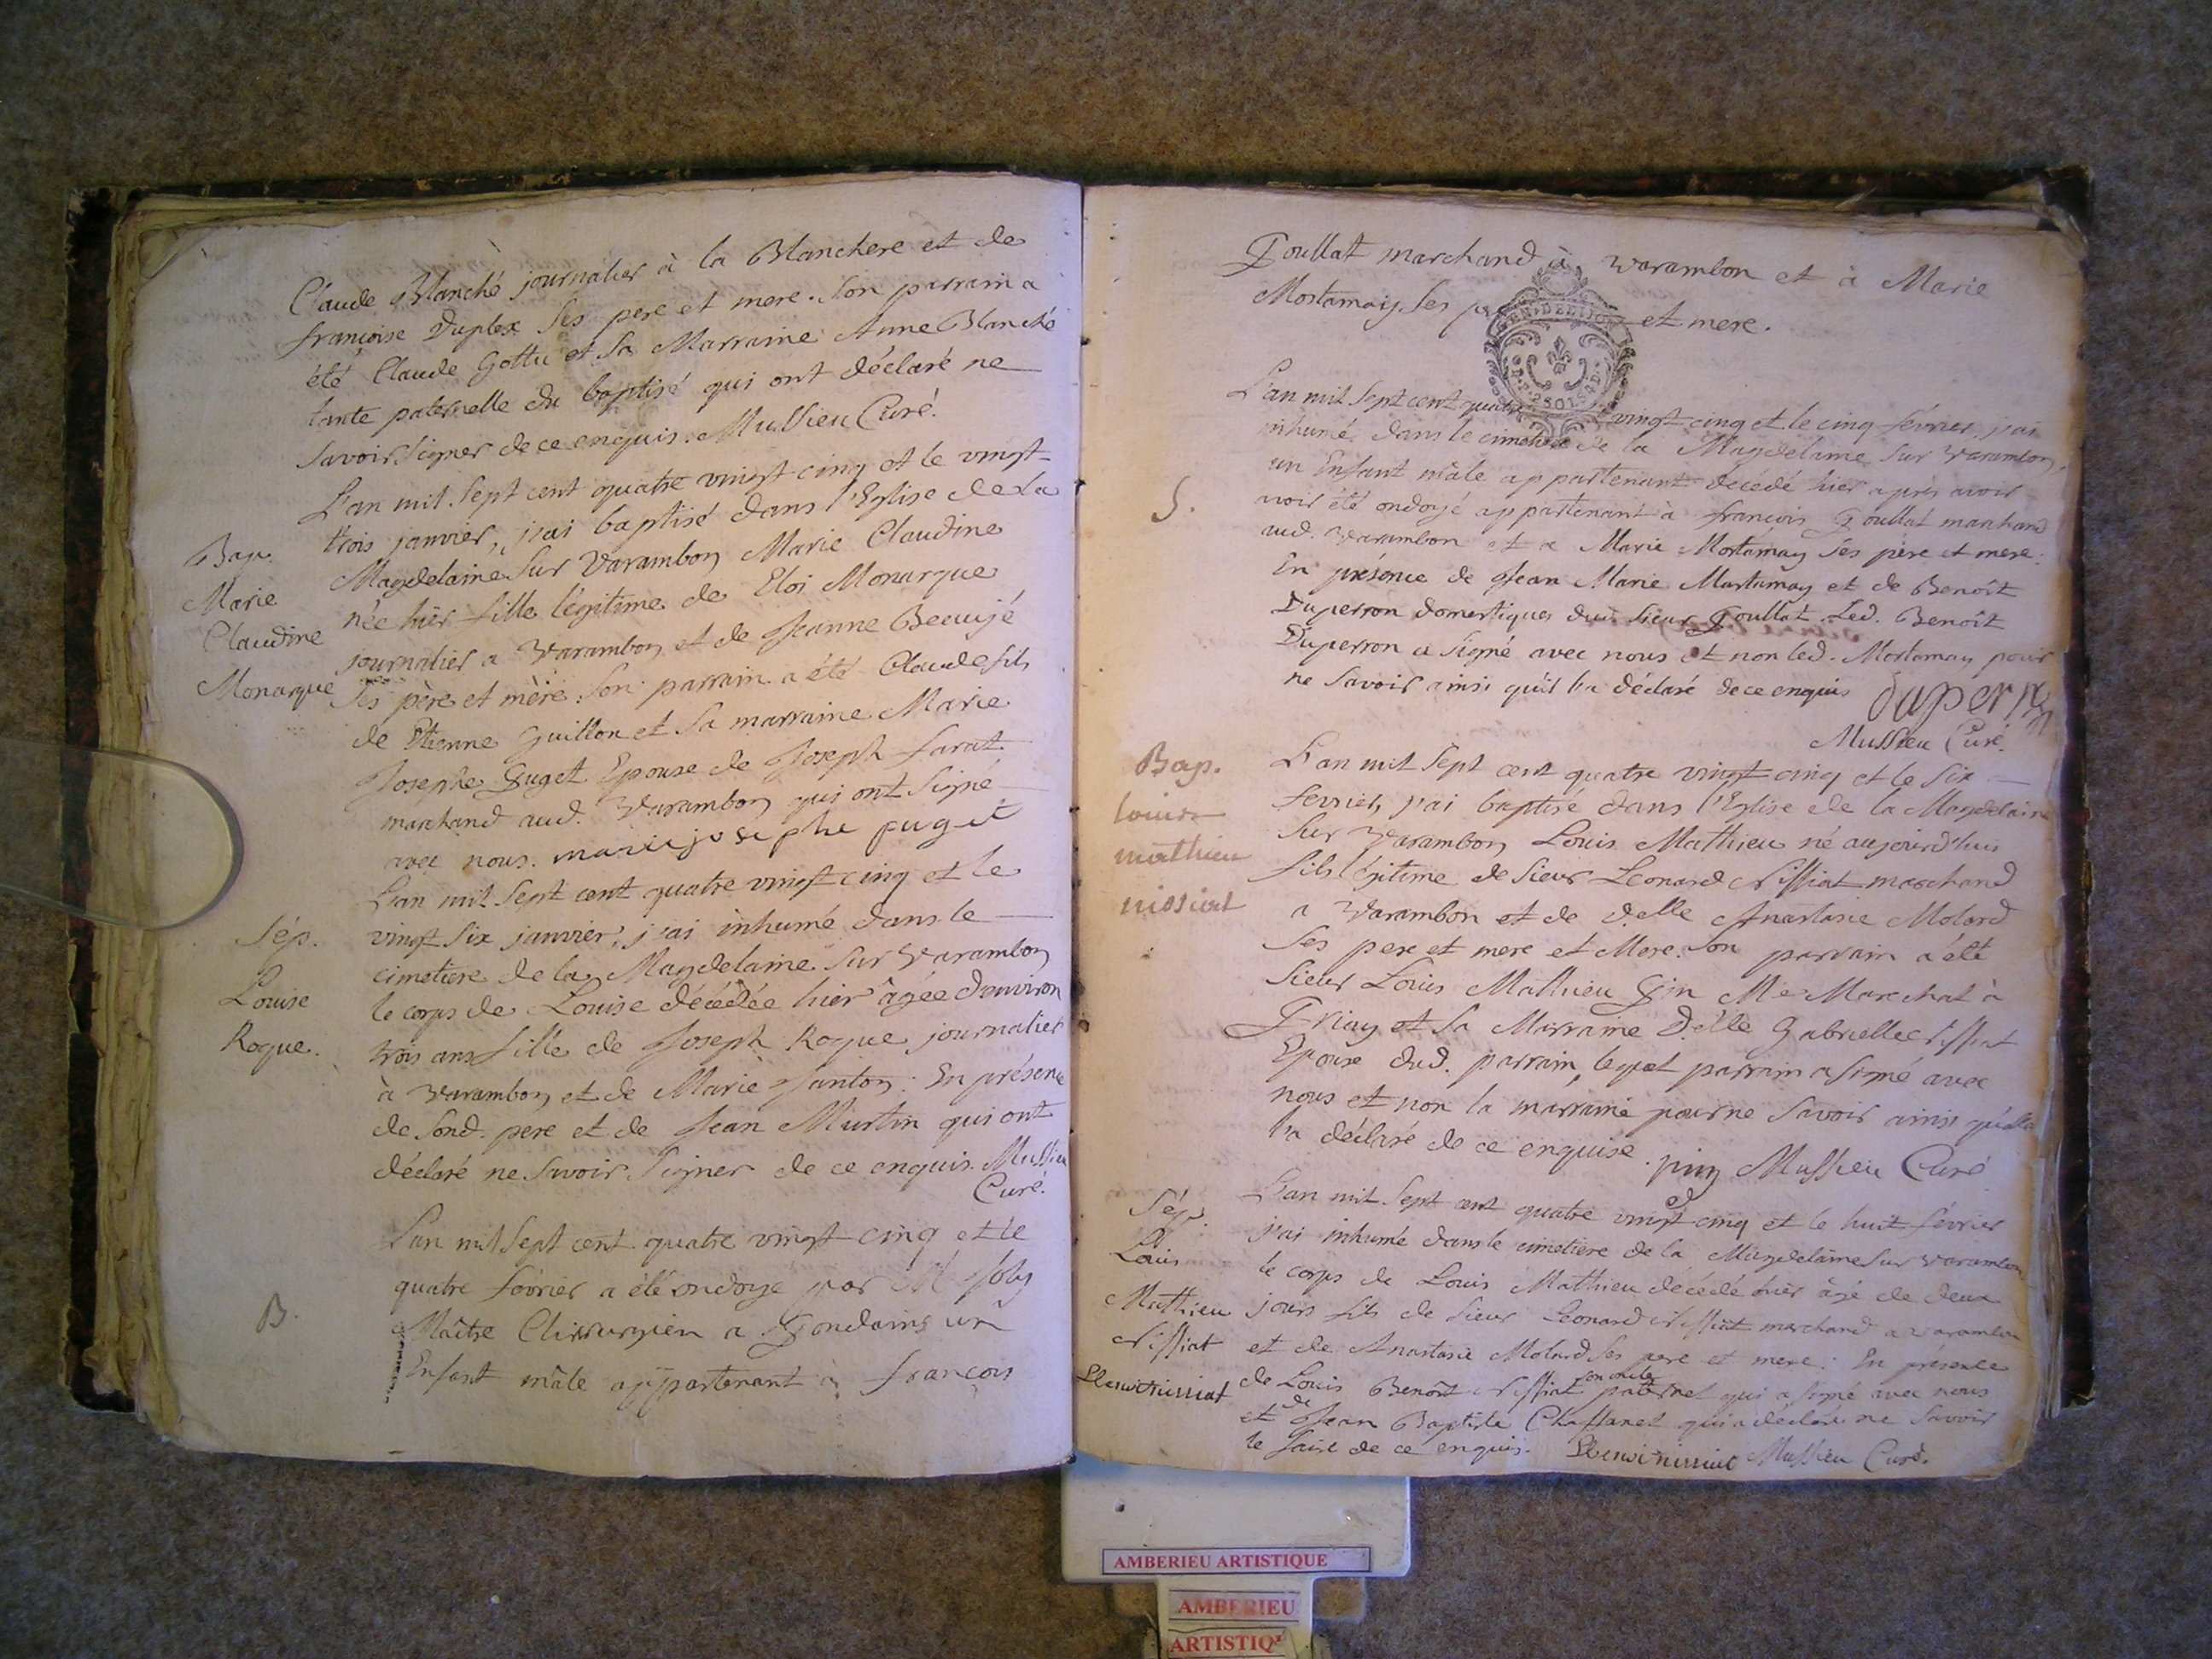 Claude Blanché journalier à la Blanchere et de
françoise Duplex Ses pere et mere. Son parrain a
été Claude Gottu et Sa Marraine Anne Blanché
tante paternelle du baptisé qui ont déclaré ne
Savoir Signer de ce enquis. Mussieu Curé.
L'an mil Sept cent quatre vingt cinq et le vingt
Bap.
trois janvier, j'ai baptisé dans l'Eglise de La
Marie
Magdelaine Sur Varambon Marie Claudine
Claudine
née hier fille légitime de Eloi Monarque
Monarque
journalier a Varambon et de Jeanne Beaujé
Ses père et mère. Son parrain a été Claude fils
de Etienne Guillon et Sa marraine Marie
Josephe Puget Epouse de Joseph Farat
marchand aud. Varambon qui ont Signé
avec nous. marie josephe puget
L'an mil Sept cent quatre vingt cinq et le
Sép.
vingt Six janvier, j'ai inhumé dans le
cimetiere de la Magdelaine Sur Varambon
Louise
le corps de Louise décédée hier âgée d'environ
Roque.
trois ans fille de Joseph Roque journalier
à Varambon et de Marie Janton. En présence
de Sond. pere et de Jean Murtin qui ont
déclaré ne Savoir Signer de ce enquis. Mussieu
Curé.
L'an mil Sept cent quatre vingt cinq et le
quatre février a été ondoyé par Mr Joly
B.
Maître Chirurgien a un
Enfant mâle appartenant à françois
Goullat marchand à Varambon et à Marie
Mortamay Ses et mere.
GEN. DE DIJON
L'an mil Sept cent quatre vingt cinq et le cinq février, j'ai
inhumé dans le cimetiere de la Magdelaine Sur Varambon,
un Enfant mâle appartenant decédé hier après avoir
S.
avoir été ondoyé appartenant à françois Goullat marchand
aud. Varambon et a Marie Mortamay Ses père et mere.
En présence de Jean Marie Mortamay et de Benoît
Duperron domestiques dud. Sieur Goullat. Led. Benoît
Duperron a Signé avec nous et non led. Mortamay pour
ne Savoir ainsi qu'il l'a déclaré de ce enquis Duperron
Mussieu Curé.
Bap.
L'an mil Sept cent quatre vingt cinq et le Six
louis
fevrier, j'ai baptisé dans l'Eglise de la Magdelaine
mathieu
Sur Varambon Louis Mathieu né aujourd'hui
nissiat
fils légitime de Sieur Leonard Nissiat marchand
a Varambon et de Delle Anastasie Molard
Ses pere et mere et Mere. Son parrain a été
Sieur Louis Mathieu Me Marchat à
Priay et Sa Marraine Delle Gabrielle Nissiat
Epouse dud. parrain, lequel parrain a Signé avec
nous et non la marraine pour ne Savoir ainsi qu'elle
l'a déclaré de ce enquise. Mussieu Curé
Sép.
L'an mil Sept cent quatre vingt cinq et le huit février
j'ai inhumé dans le cimetiere de la Magdelaine Sur Varambon
Louis
le corps de Louis Mathieu décédé hier âgé de deux
Mathieu
jours fils de Sieur Leonard Nissiat marchand a Varambon
Nissiat
et de Anastasie Molard Ses pere et mere. En présence
de Louis Benoît Nissiat son oncle paternel qui a signé avec nous
et de Jean Baptiste Chaffanet qui a déclaré ne Savoir
le faire de ce enquis. Mussieu Curé.
AMBERIEU ARTISTIQUE
AMBERIEU
ARTISTIQ